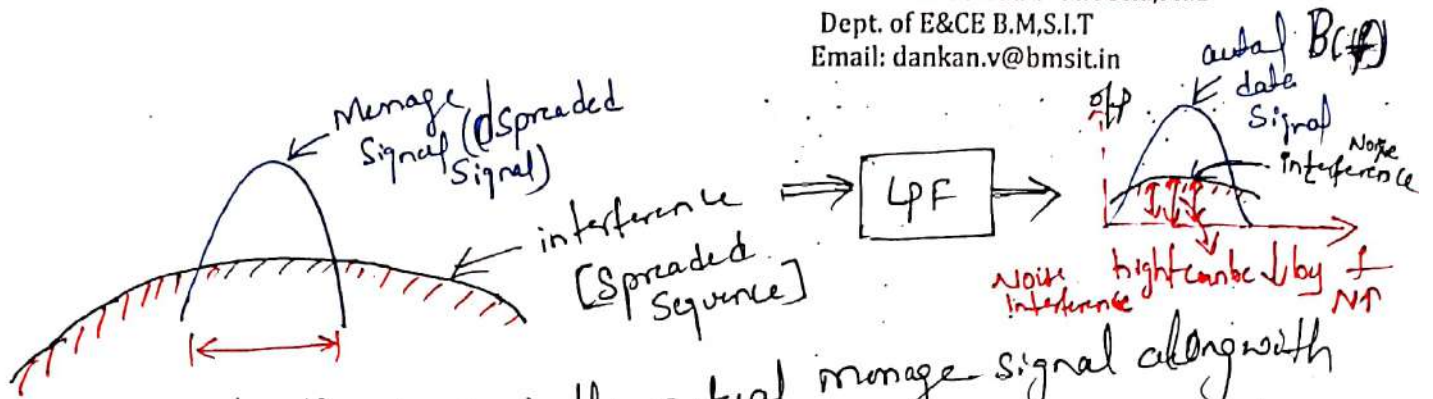 Dept. of E&CE B.M,S.I.T
Email: dankan.v@bmsit.in
Message
Signal (dSpreaded
Signal)
interference
[Spreaded
Sequence]
LPF
o/p
actual B(f)
data
Signal
Noise
interference
Noise
interference
hight can be ↓ by
N↑
f
the actual message signal alongwith